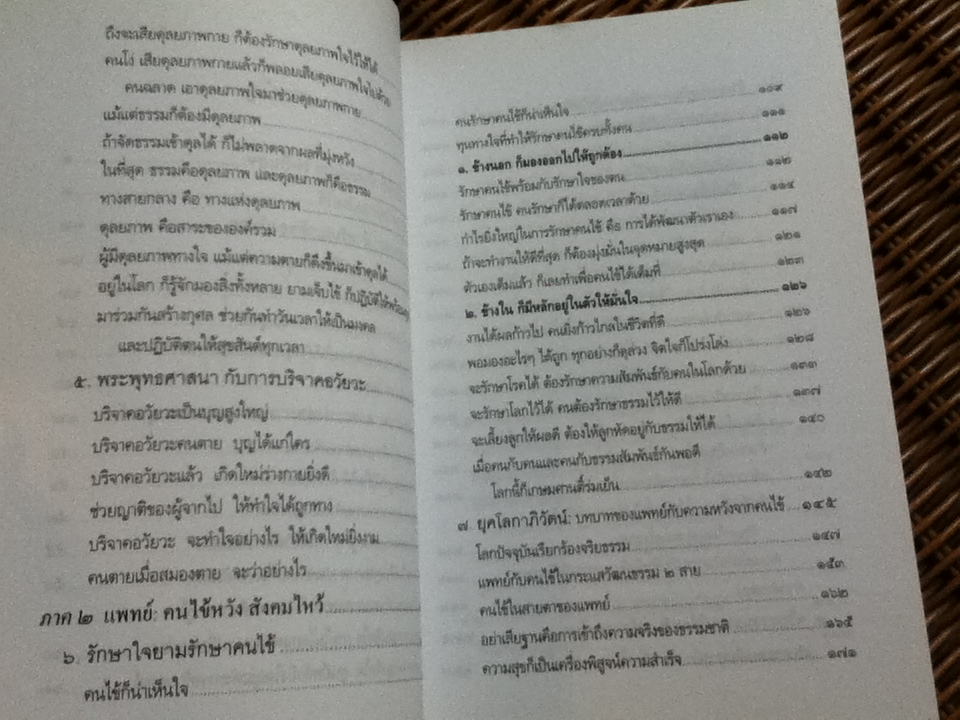 ถึงจะเสียดุลยภาพกาย ก็ต้องรักษาดุลยภาพใจไว้ให้ได้
คนโง่ เสียดุลยภาพกายแล้วก็พลอยเสียดุลยภาพใจไปด้วย
คนฉลาด เอาดุลยภาพใจมาช่วยดุลยภาพกาย
แม้แต่ธรรมก็ต้องมีดุลยภาพ
ถ้าจัดธรรมเข้าดุลได้ ก็ไม่พลาดจากผลที่มุ่งหวัง
ในที่สุด ธรรมคือดุลยภาพ และดุลยภาพก็คือธรรม
ทางสายกลาง คือ ทางแห่งดุลยภาพ
ดุลยภาพ คือสาระขององค์รวม
ผู้มีดุลยภาพทางใจ แม้แต่ความตายก็ดึงขึ้นมาเข้าดุลได้
อยู่ในโลก ก็รู้จักมองสิ่งทั้งหลาย ยามเจ็บไข้ ก็ปฏิบัติให้
มาร่วมกันสร้างกุศล ช่วยกันทำวันเวลาให้เป็นมงคล
และปฏิบัติตนให้สุขสันต์ทุกเวลา
๕. พระพุทธศาสนา กับการบริจาคอวัยวะ
บริจาคอวัยวะเป็นบุญสูงใหญ่
บริจาคอวัยวะคนตาย บุญได้แก่ใคร
บริจาคอวัยวะแล้ว เกิดใหม่ร่างกายยิ่งดี
ช่วยญาติของผู้จากไป ให้ทำใจได้ถูกทาง
บริจาคอวัยวะ จะทำใจอย่างไร ให้เกิดใหม่ยิ่งงาม
คนตายเมื่อสมองตาย จะว่าอย่างไร
ภาค ๒ แพทย์: คนไข้หวัง สังคมไหว้
๖. รักษาใจยามรักษาคนไข้
คนไข้ก็น่าเห็นใจ
คนรักษาคนไข้ก็น่าเห็นใจ ๑๐๙
ทุนทางใจที่ทำให้รักษาคนไข้ครบทั้งคน ๑๑๑
๑. ข้างนอก ก็มองออกไปให้ถูกต้อง ๑๑๒
รักษาคนไข้พร้อมกับรักษาใจของตน ๑๑๒
รักษาคนไข้ คนรักษาก็ได้ตลอดเวลาด้วย ๑๑๔
กำไรยิ่งใหญ่ในการรักษาคนไข้ คือ การได้พัฒนาตัวเราเอง ๑๑๗
ถ้าจะทำงานให้ดีที่สุด ก็ต้องมุ่งมั่นในจุดหมายสูงสุด ๑๒๑
ตัวเองเต็มแล้ว ก็เลยทำเพื่อคนไข้ได้เต็มที่ ๑๒๓
๒. ข้างใน ก็มีหลักอยู่ในตัวให้มั่นใจ ๑๒๖
งานได้ผลก้าวไป คนยิ่งก้าวไกลในชีวิตที่ดี ๑๒๖
พอมองอะไรๆ ได้ถูก ทุกอย่างก็ลุล่วง จิตใจก็โปร่งโล่ง ๑๒๘
จะรักษาโรคได้ ต้องรักษาความสัมพันธ์กับคนในโลกด้วย ๑๓๑
จะรักษาโลกไว้ได้ คนต้องรักษาธรรมไว้ให้ดี ๑๓๗
จะเลี้ยงลูกให้ผลดี ต้องให้ลูกหัดอยู่กับธรรมให้ได้ ๑๔๐
เมื่อคนกับคนและคนกับธรรมสัมพันธ์กันพอดี
โลกนี้ก็เกษมศานติ์ร่มเย็น ๑๔๒
๗. ยุคโลกาภิวัตน์: บทบาทของแพทย์กับความหวังจากคนไข้ ๑๔๕
โลกปัจจุบันเรียกร้องจริยธรรม ๑๔๗
แพทย์กับคนไข้ในกระแสวัฒนธรรม ๒ สาย ๑๕๓
คนไข้ในสายตาของแพทย์ ๑๖๒
อย่าเสียฐานคือการเข้าถึงความจริงของธรรมชาติ ๑๖๕
ความสุขก็เป็นเครื่องพิสูจน์ความสำเร็จ ๑๗๑